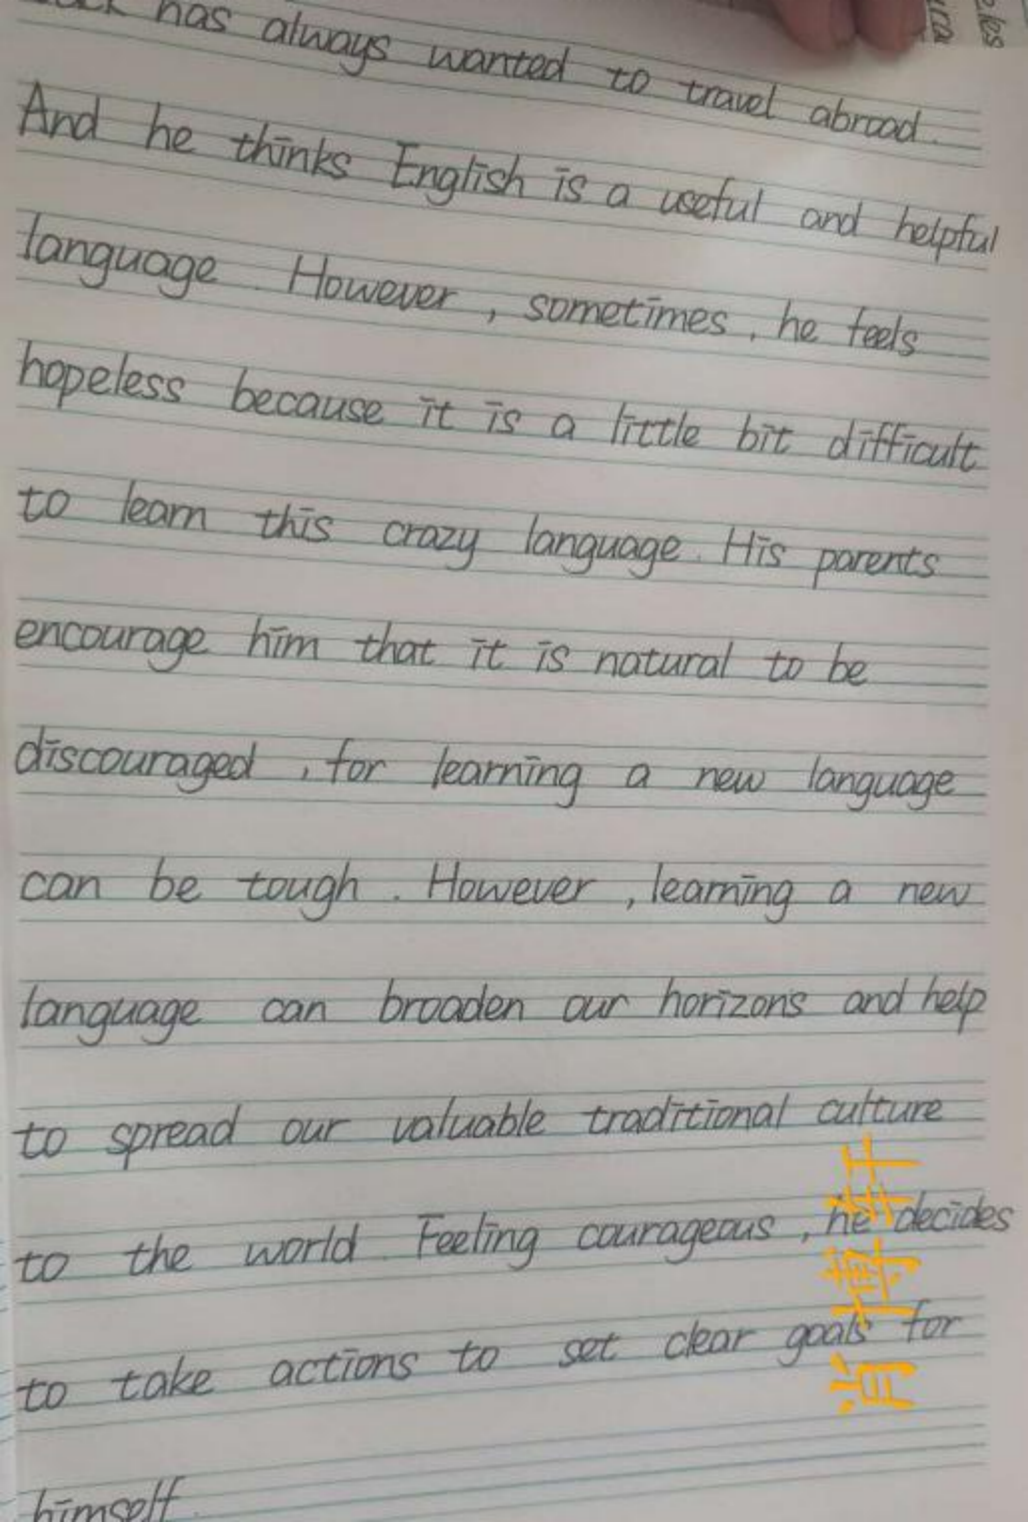 has always wanted to travel abroad.
And he thinks English is a useful and helpful
language. However, sometimes, he feels
hopeless because it is a little bit difficult
to learn this crazy language. His parents
encourage him that it is natural to be
discouraged, for learning a new language
can be tough. However, learning a new
language can broaden our horizons and help
to spread our valuable traditional culture
to the world. Feeling courageous, he decides
to take actions to set clear goals for
himself.
肖博轩